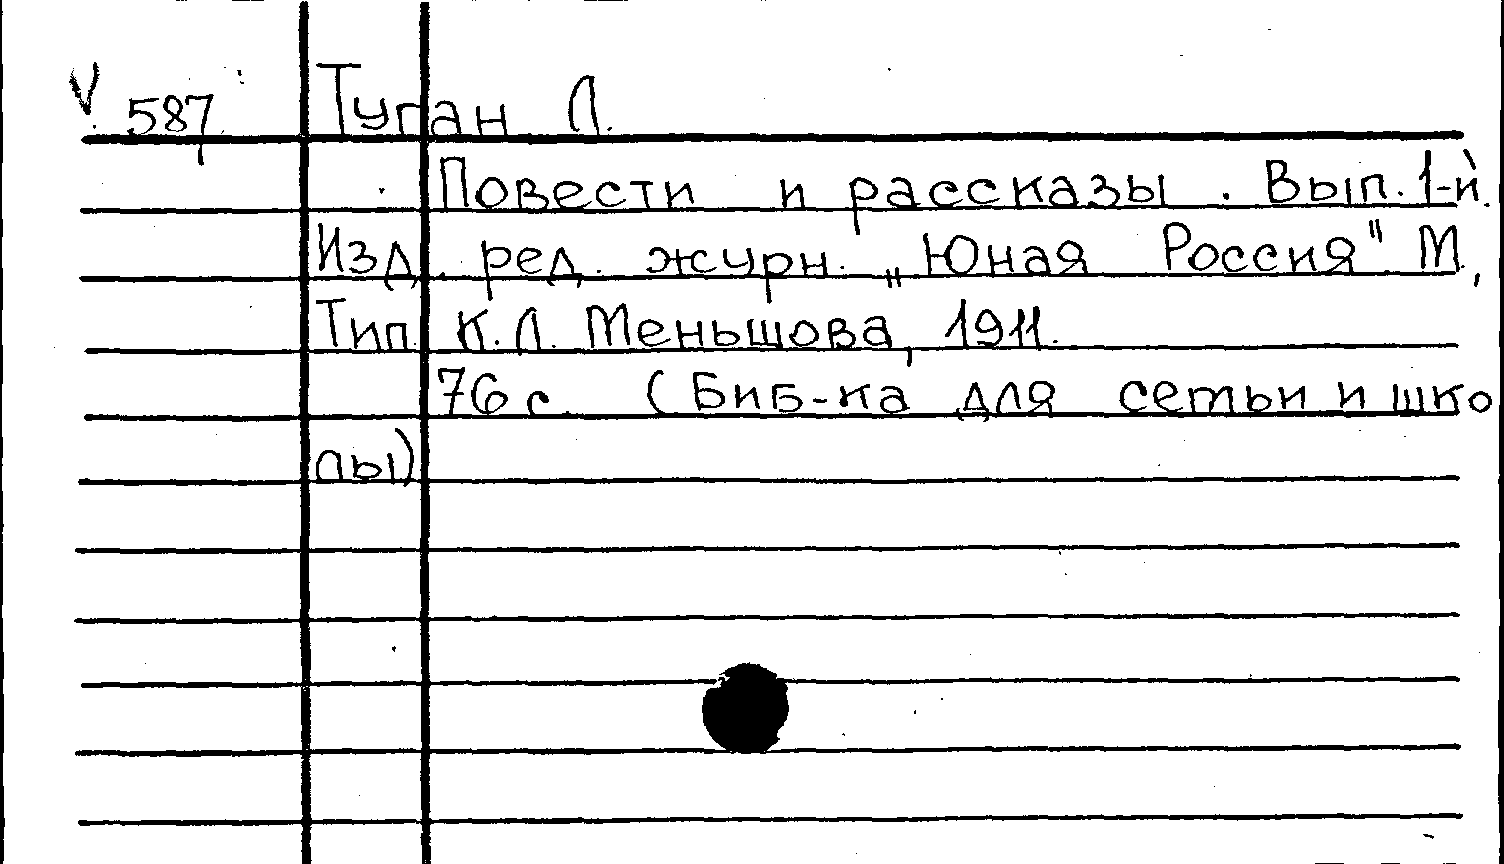 V 587 Туган Л.
Повести и рассказы. Вып. 1-й.
Изд. ред. журн. „Юная Россия" М.,
Тип. К.Л. Меньшова, 1911.
76 с. (Биб-ка для сетьи и шко
лы)